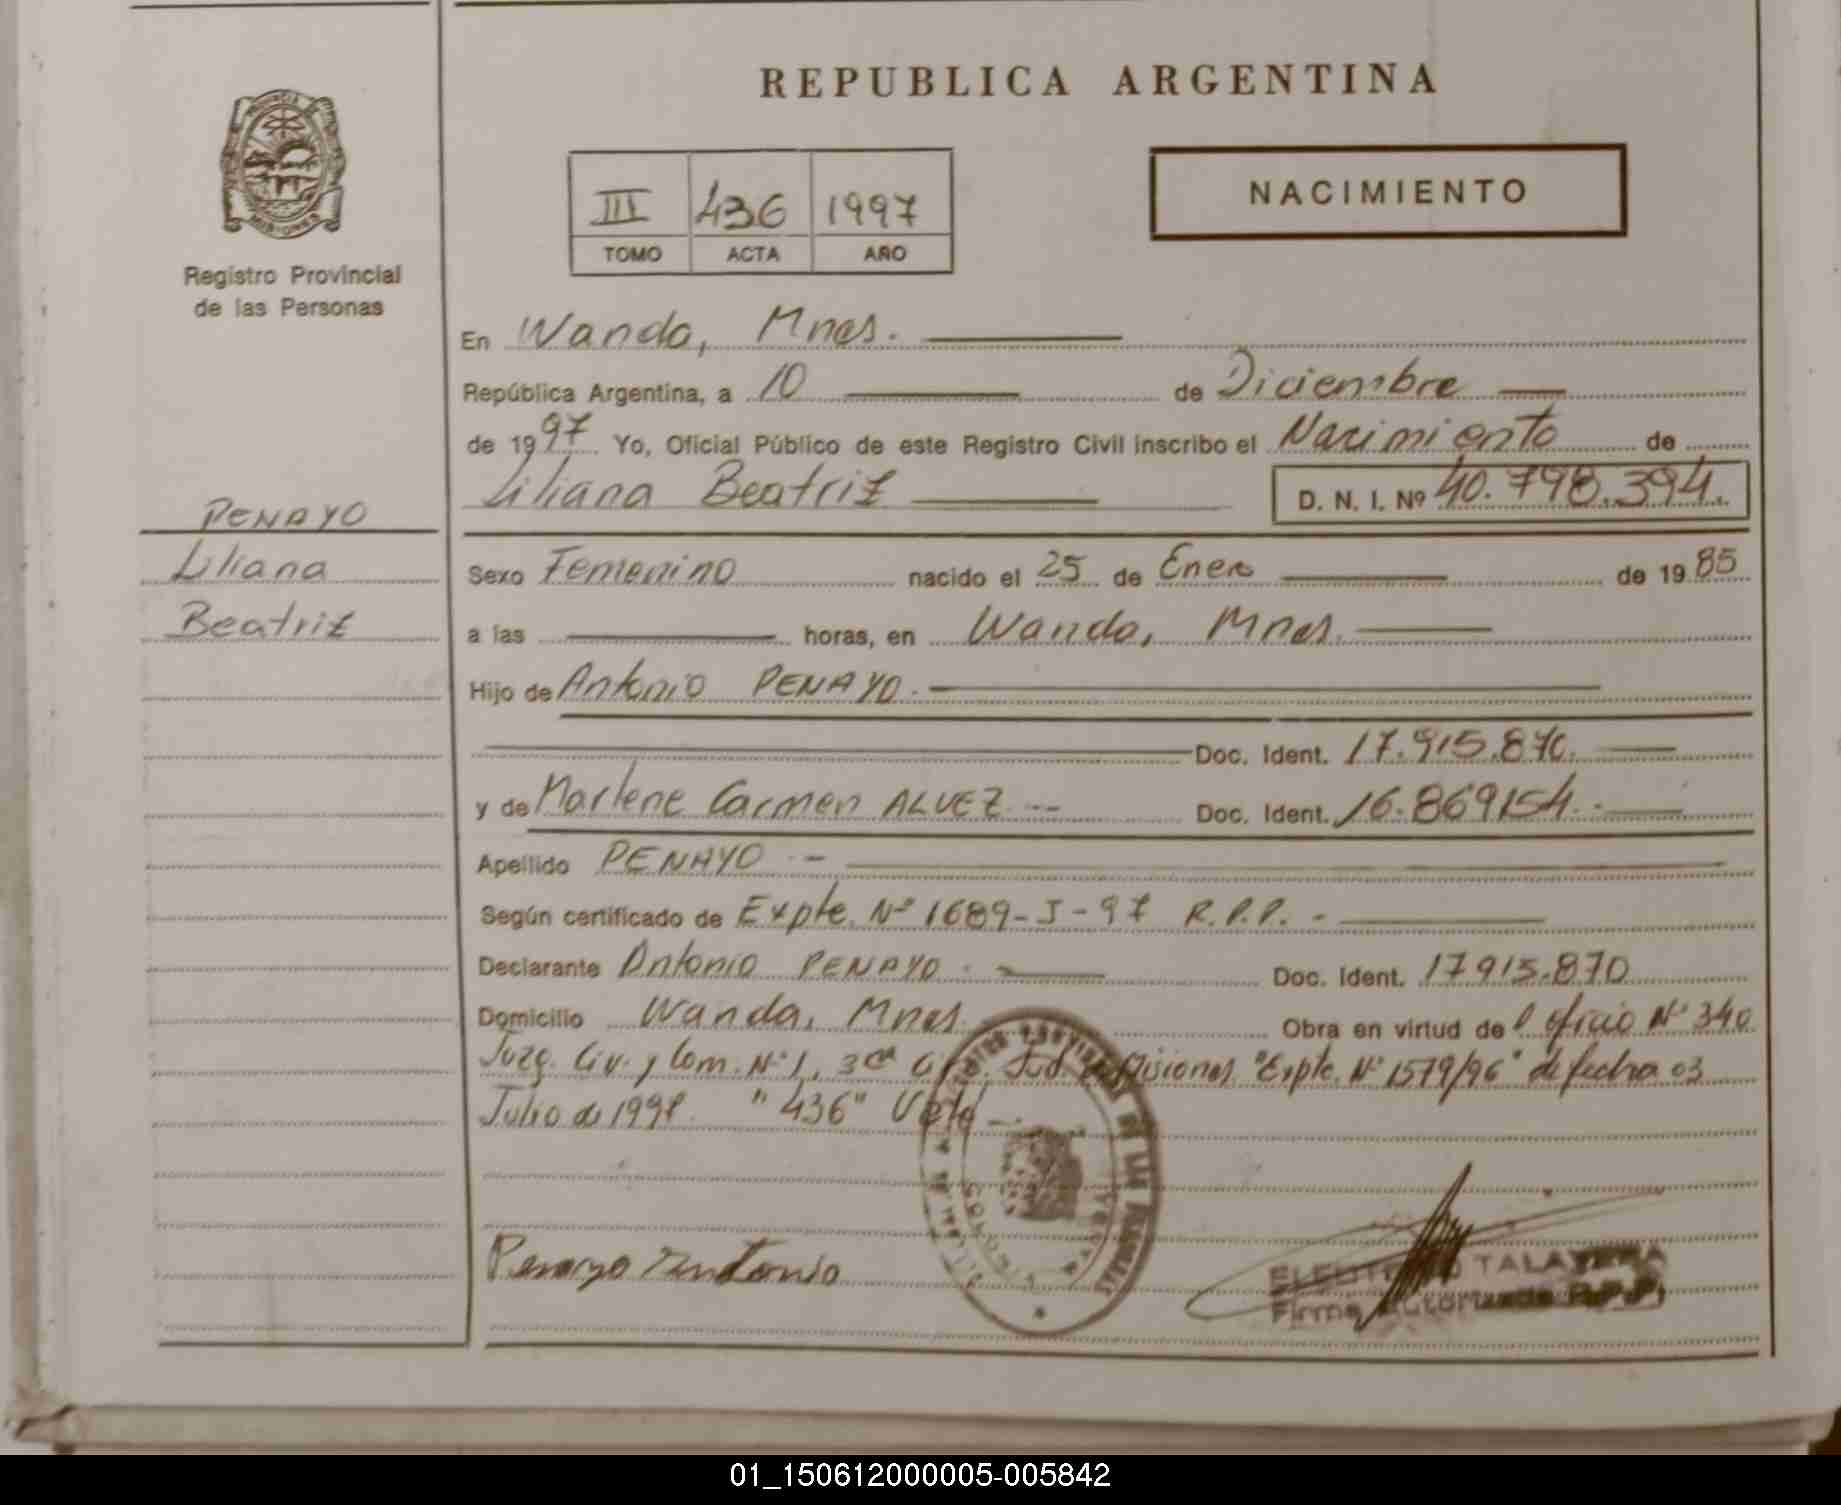 REPUBLICA ARGENTINA
III 436 1997
TOMO ACTA AÑO
NACIMIENTO
Registro Provincial
de las Personas
PENAYO
Liliana
Beatriz
En Wanda, Mnes.
República Argentina, a 10 de Diciembre
de 1997 Yo, Oficial Público de este Registro Civil inscribo el Nacimiento de
Liliana Beatriz D. N. I. Nº 40.798.394.
Sexo Femenino nacido el 25 de Enero de 1985
a las horas, en Wanda, Mnes.
Hijo de Antonio PENAYO.
Doc. Ident. 17.915.870.
y de Marlene Carmen ALVEZ Doc. Ident. 16.869154.
Apellido PENAYO
Según certificado de Expte. Nº 1689-J-97 R.P.P.
Declarante Antonio PENAYO Doc. Ident. 17915.870
Domicilio Wanda, Mnes. Obra en virtud de oficio Nº 340
Juzg. Civ. y Com. Nº 1, 3ra Jud. Misiones "Expte. Nº 1579/96" de fecha 03
Julio de 1997. "436" Vale
Penayo Antonio
TALAVERA
Firma Autorizada R.P.P.
01_150612000005-005842